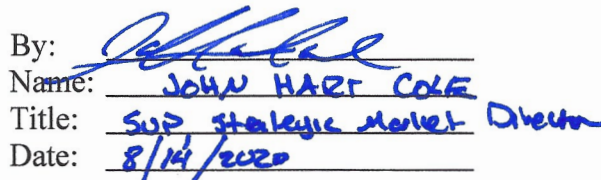 By:
Name: JOHN HART COLE
Title: SVP Strategic Market Director
Date: 8/14/2020